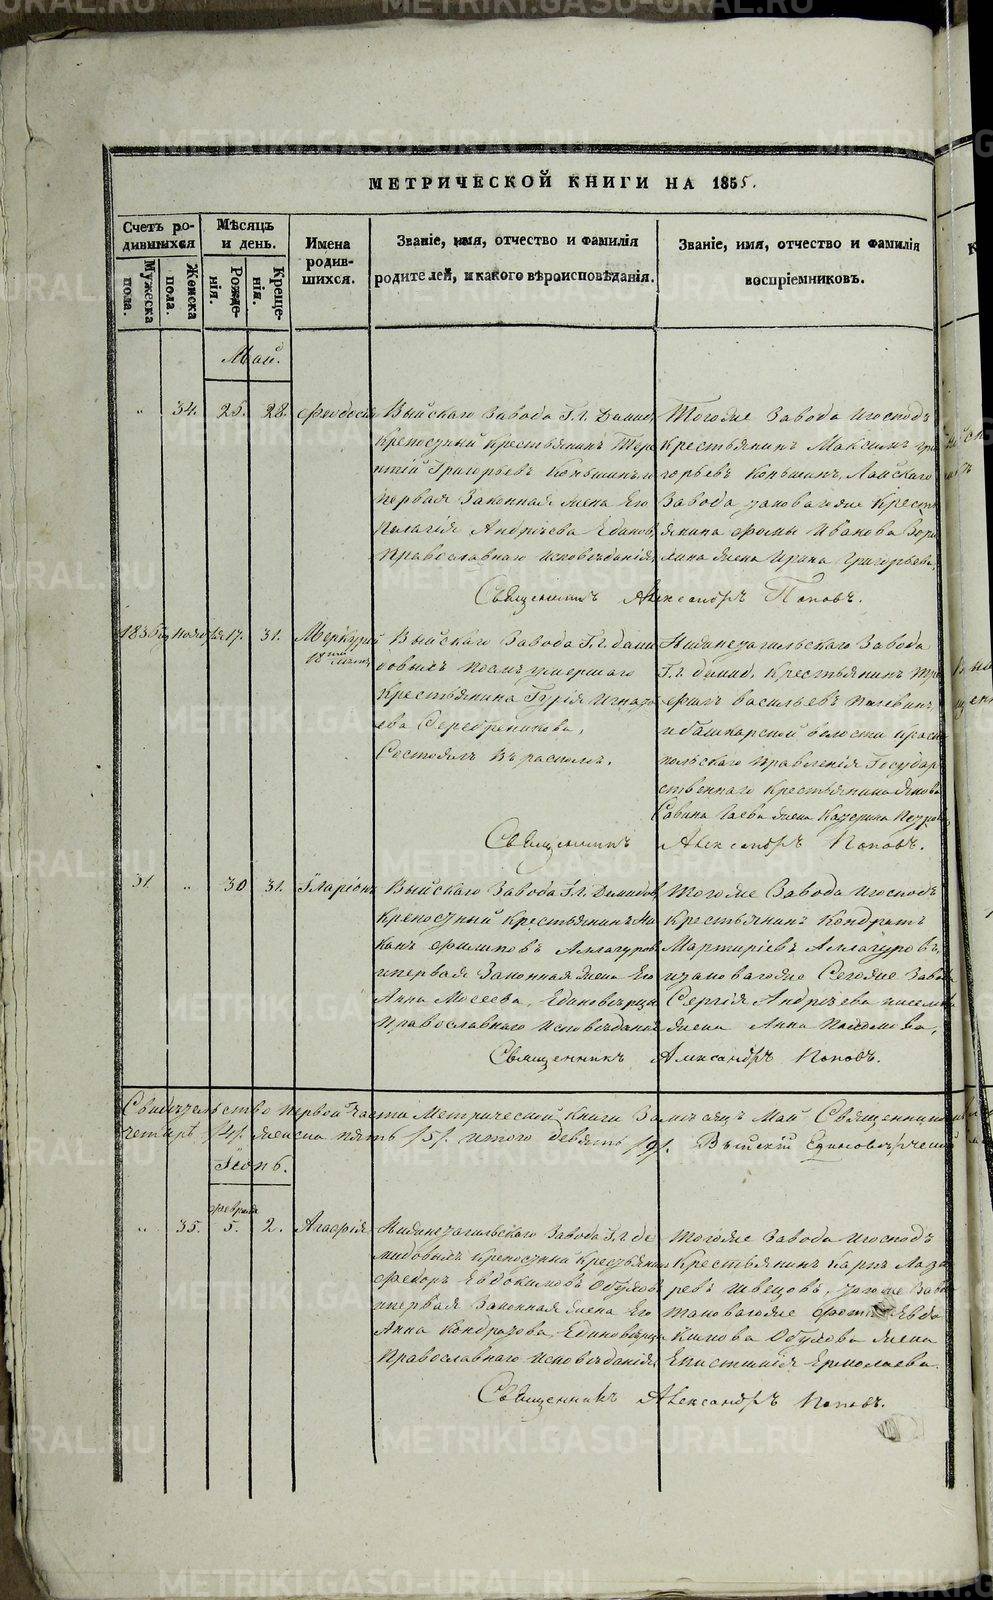 МЕТРИЧЕСКОЙ КНИГИ НА 1855.
Счетъ ро-
дившихся
Мужеска
пола.
Женска
пола.
Мѣсяцъ
и день.
Рожде-
нія.
Креще-
нія.
Имена
родив-
шихся.
Званіе, имя, отчество и фамилія
родителей, и какого вѣроисповѣданія.
Званіе, имя, отчество и фамилія
воспріемниковъ.
Май.
„ 34. 25. 28. Феодосія
Выйскаго Завода Г.г. Демид.
крепостный крестьянинъ Тере
нтій Григорьевъ Коньшинъ и
первая Законная жена Его
Пелагія Андрѣева Единов.
Православнаго исповѣданія
Тогоже Завода и господъ
крестьянинъ Максимъ Гри
горьевъ Коньшинъ, Лайскаго
Завода таковагоже Кресть
янина Фомы Иванова
жена Ирина Григорьева,
Священникъ Александръ Поповъ.
1836 ноября 17. 31. Меркурій
18
Выйскаго Завода Г.г. Деми
довыхъ послѣ умершаго
крестьянина Гурія Игнать
ева Серебреникова,
Состоялъ въ расколѣ.
Нижнетагильскаго Завода
Г.г. Демид. крестьянинъ Тро
фимъ Васильевъ
и башкарской волости Красно
польскаго Правленія Государ
ственнаго крестьянина Якова
Савина жена Катерина Петрова,
Священникъ Александръ Поповъ.
31. „ 30 31. Иларіонъ
Выйскаго Завода Г.г. Демидов.
крепостный крестьянинъ Ни
конъ Филиповъ
и первая Законная жена Его
Анна Мосеева, Единовѣрцы
Православнаго исповѣданія
Тогоже Завода и господъ
крестьянинъ Кондратъ
Мартиріевъ
и таковагоже Сегоже Завода
Сергія Андрѣева
жена Анна
Священникъ Александръ Поповъ.
Свидѣтельство первой части Метрической книги За мѣсяцъ Май Священникъ
четыре /4/. женска пять /5/. итого девять /9/. Выйскій Единовѣрческій
Іюнь.
февраля
„ 35. 5. 2. Агафія
Нижнетагильскаго Завода Г.г. Де
мидовыхъ крепостный крестьянинъ
Федоръ Евдокимовъ Обуховъ
и первая Законная жена Его
Анна Кондратова, Единовѣрцы
Православнаго исповѣданія,
Тогоже Завода и господъ
крестьянинъ Карпъ Лаза
ревъ Швецовъ, тогоже Заво
таковагоже Евдо
кимова Обухова жена
Епистимія Ермолаева.
Священникъ Александръ Поповъ.
METRIKI.GASO-URAL.RU